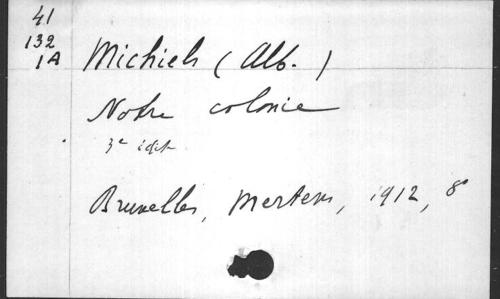 41
132
1A
Michiels (Alb.)
Notre colonie
3e édit.
Bruxelles, Mertens, 1912, 8°